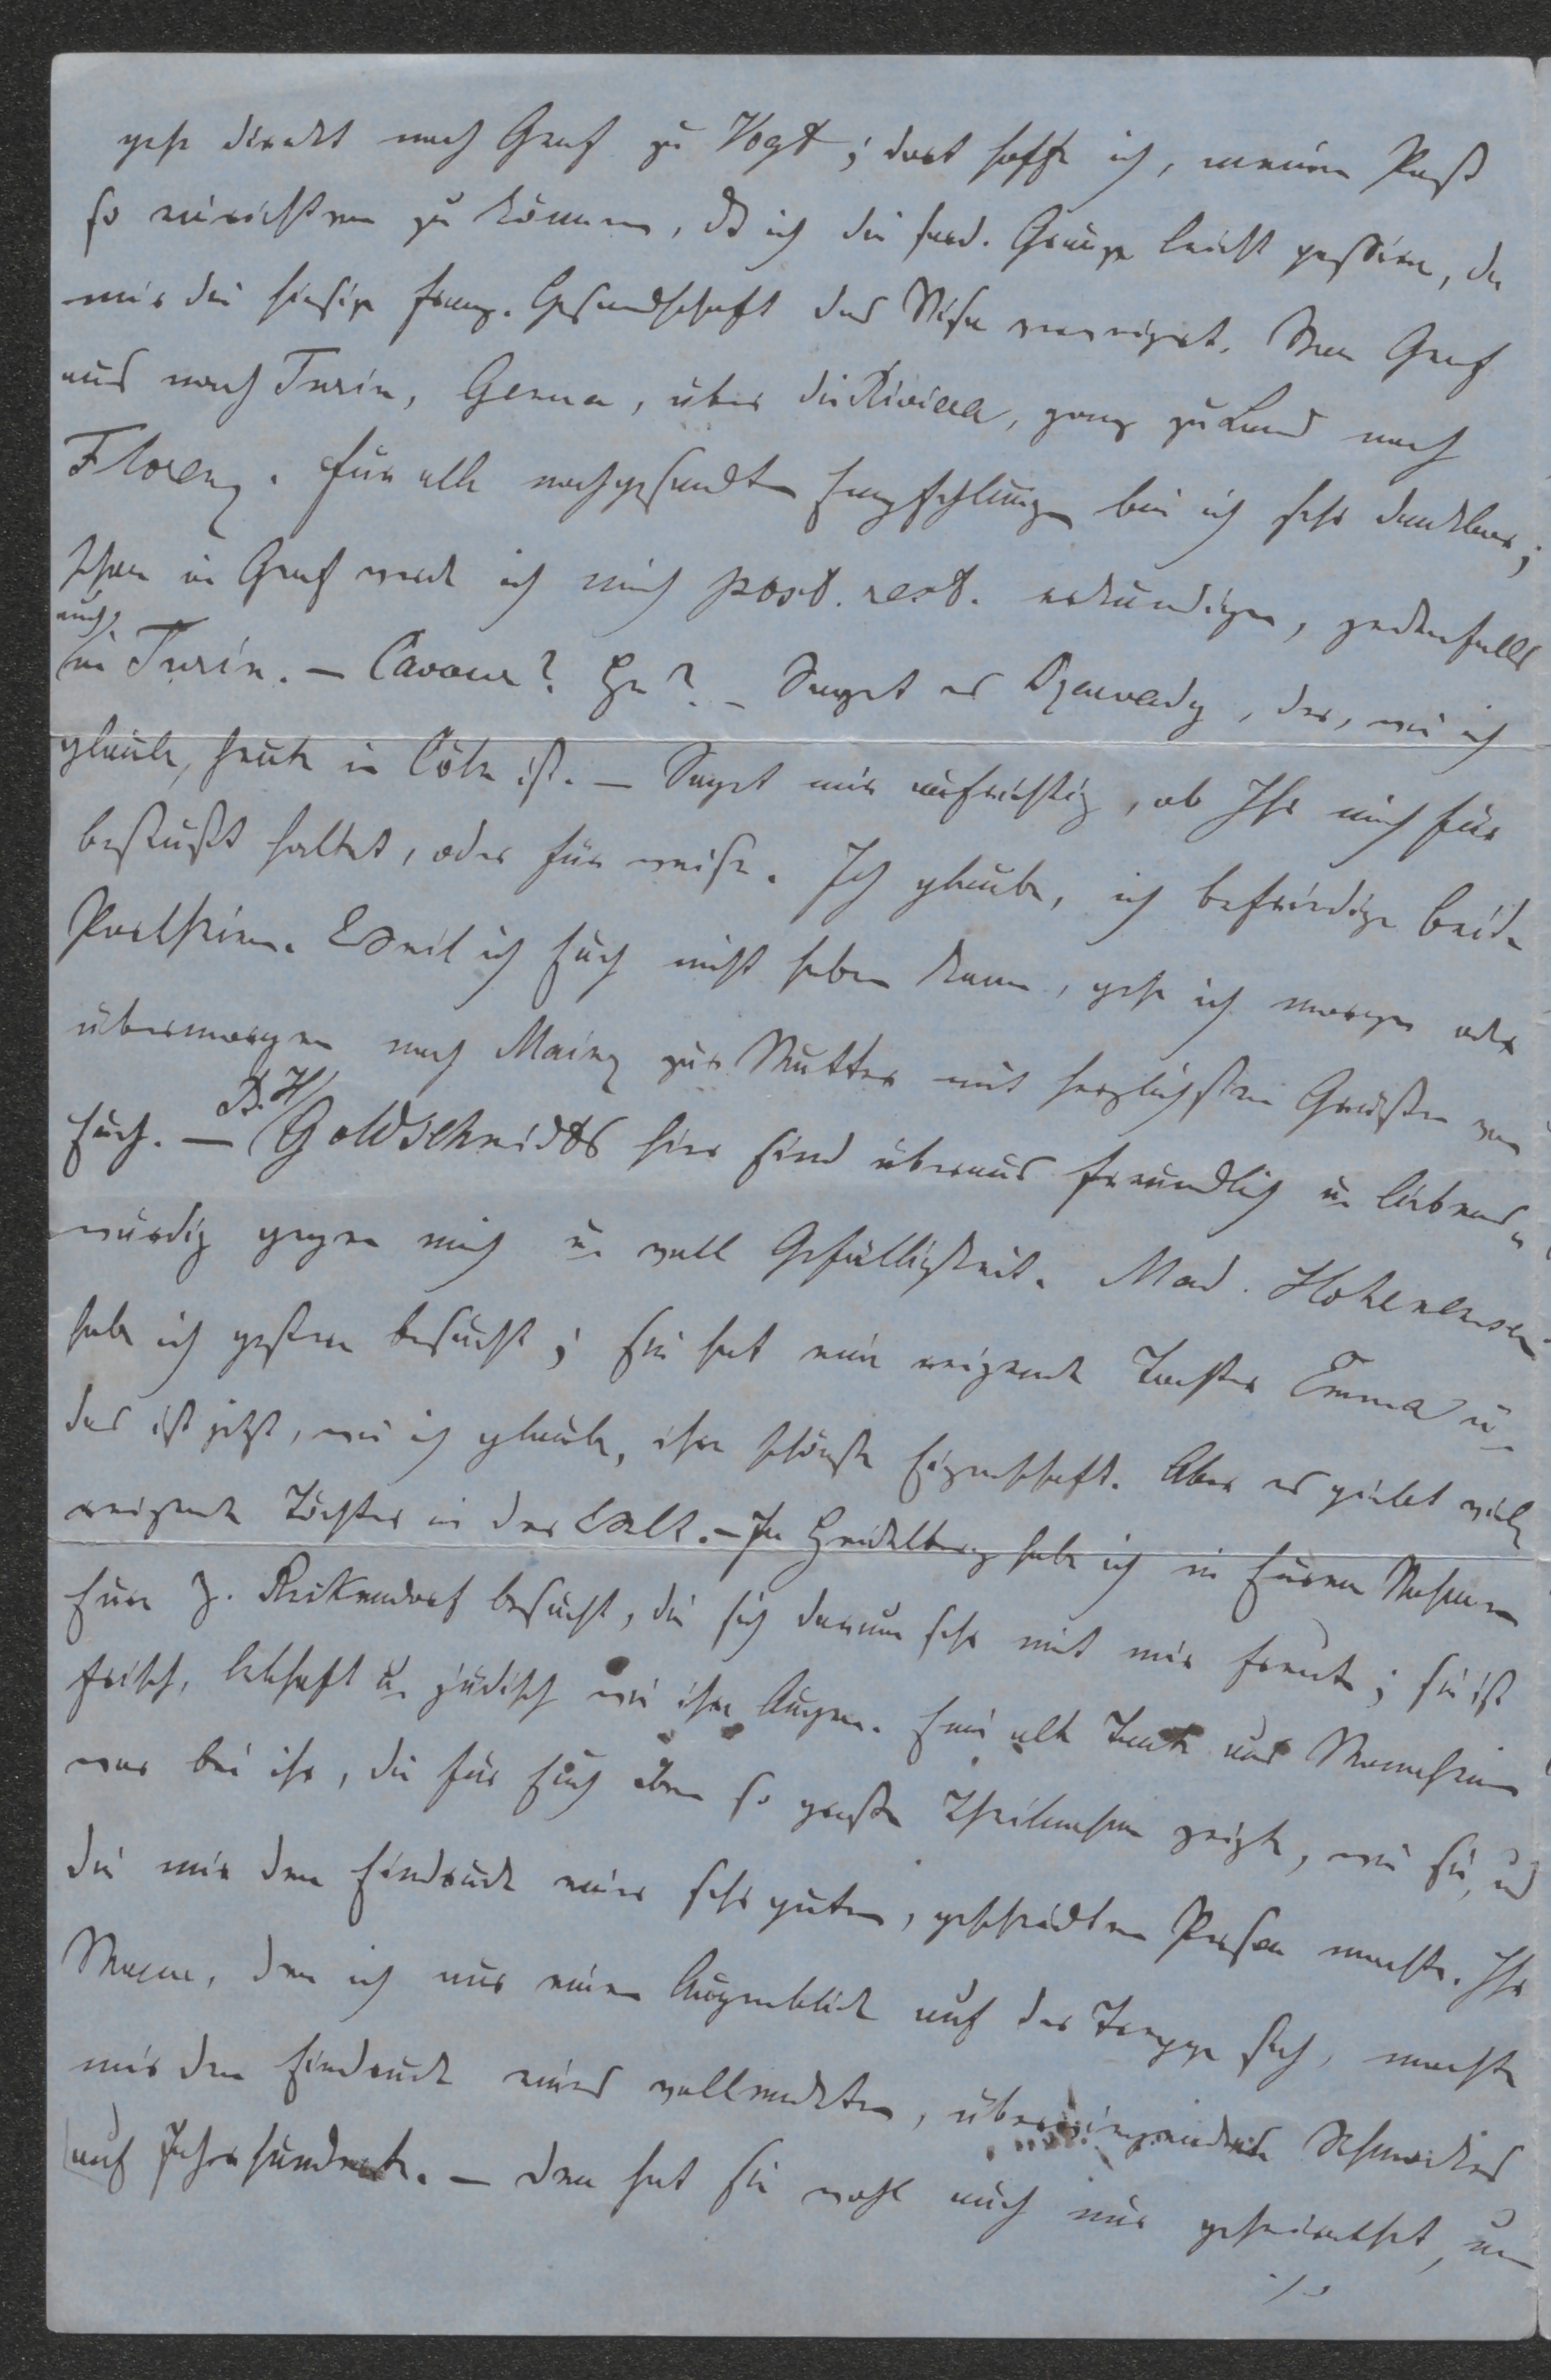 gehe direkt nach Genf zu Vogt; dort hoffe ich, meinen Paß
so einrichten zu können, dß ich die sard. Gränze leicht passire, da
mir die hiesige franz. Gesandschaft das Visa verweigert. Von Genf
aus nach Turin, Genua, über die Riviera, ganz zu Land nach
Florenz. Für alle nachgesandten Empfehlungen bin ich sehr dankbar;
schon in Genf werde ich mich post. rest. erkundigen, jedenfalls
auch
in Turin. – Cavour? He? – Saget es Szarvady, der, wie ich
glaube, heute in Cöln ist. – Saget mir aufrichtig, ob Ihr mich für
bestußt haltet, oder für weise. Ich glaube, ich befriedige beide
Partheien. Weil ich Euch nicht haben kann, gehe ich morgen oder
übermorgen nach Mainz zur Mutter mit herzlichsten Grüßen von
B. H.
Euch. – Goldschmidts hier sind überaus freundlich u. liebens-
würdig gegen mich u. voll Gefälligkeit. Mad. Hohenemser
habe ich gestern besucht; sie hat eine reizende Tochter Emma u.
das ist jetzt, wie ich glaube, ihre schönste Eigenschaft. Aber es giebt viele
reizende Töchter in der Welt. – In Heidelberg habe ich in Eurem Namen
Eure J. Reckendorf besucht, die sich darum sehr mit mir freute; sie ist
frisch, lebhaft u. jüdisch wie ihre Augen. Eine alte Tante aus Mannheim
war bei ihr, die für Euch eben so große Theilnahme zeigte, wie sie, und
die mir den Eindruck einer sehr guten, gescheidten Person machte. Ihr
Mann, den ich nur einen Augenblick auf der Treppe sah, machte
mir den Eindruck eines vollendeten, Schmockes
auf Jahrhunderte. – Den hat sie wohl auch nur geheirathet, um
./.